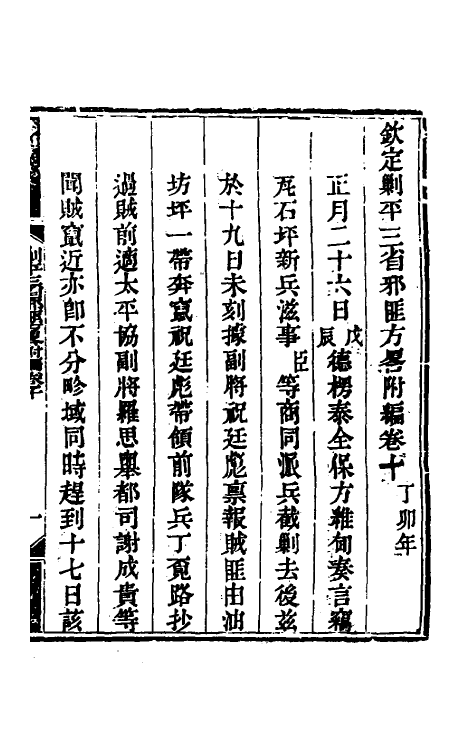 欽定剿平三省邪匪方畧附編卷十 丁卯年
正月二十六日戊辰德楞泰全保方維甸奏言竊
瓦石坪新兵滋事臣等商同派兵截剿去後茲
於十九日未刻據副將祝廷彪禀報賊匪由油
坊坪一帶奔竄祝廷彪帶領前隊兵丁覓路抄
過賊前適太平協副將羅思舉都司謝成貴等
聞賊竄近亦卽不分畛域同時趕到十七日該